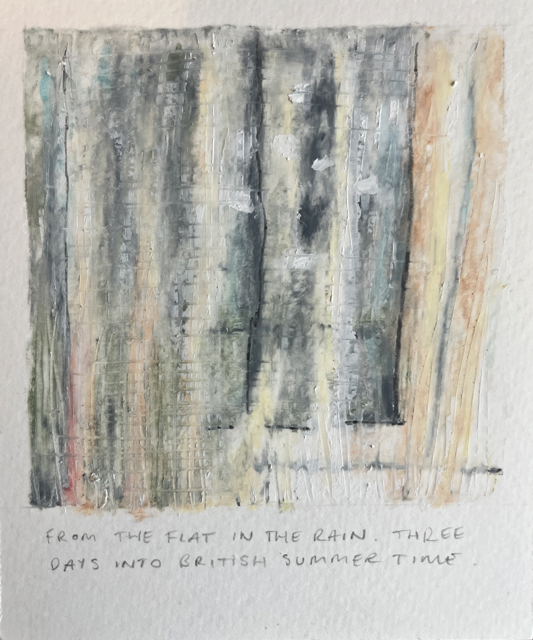 FROM THE FLAT IN THE RAIN. THREE
DAYS INTO BRITISH SUMMER TIME.